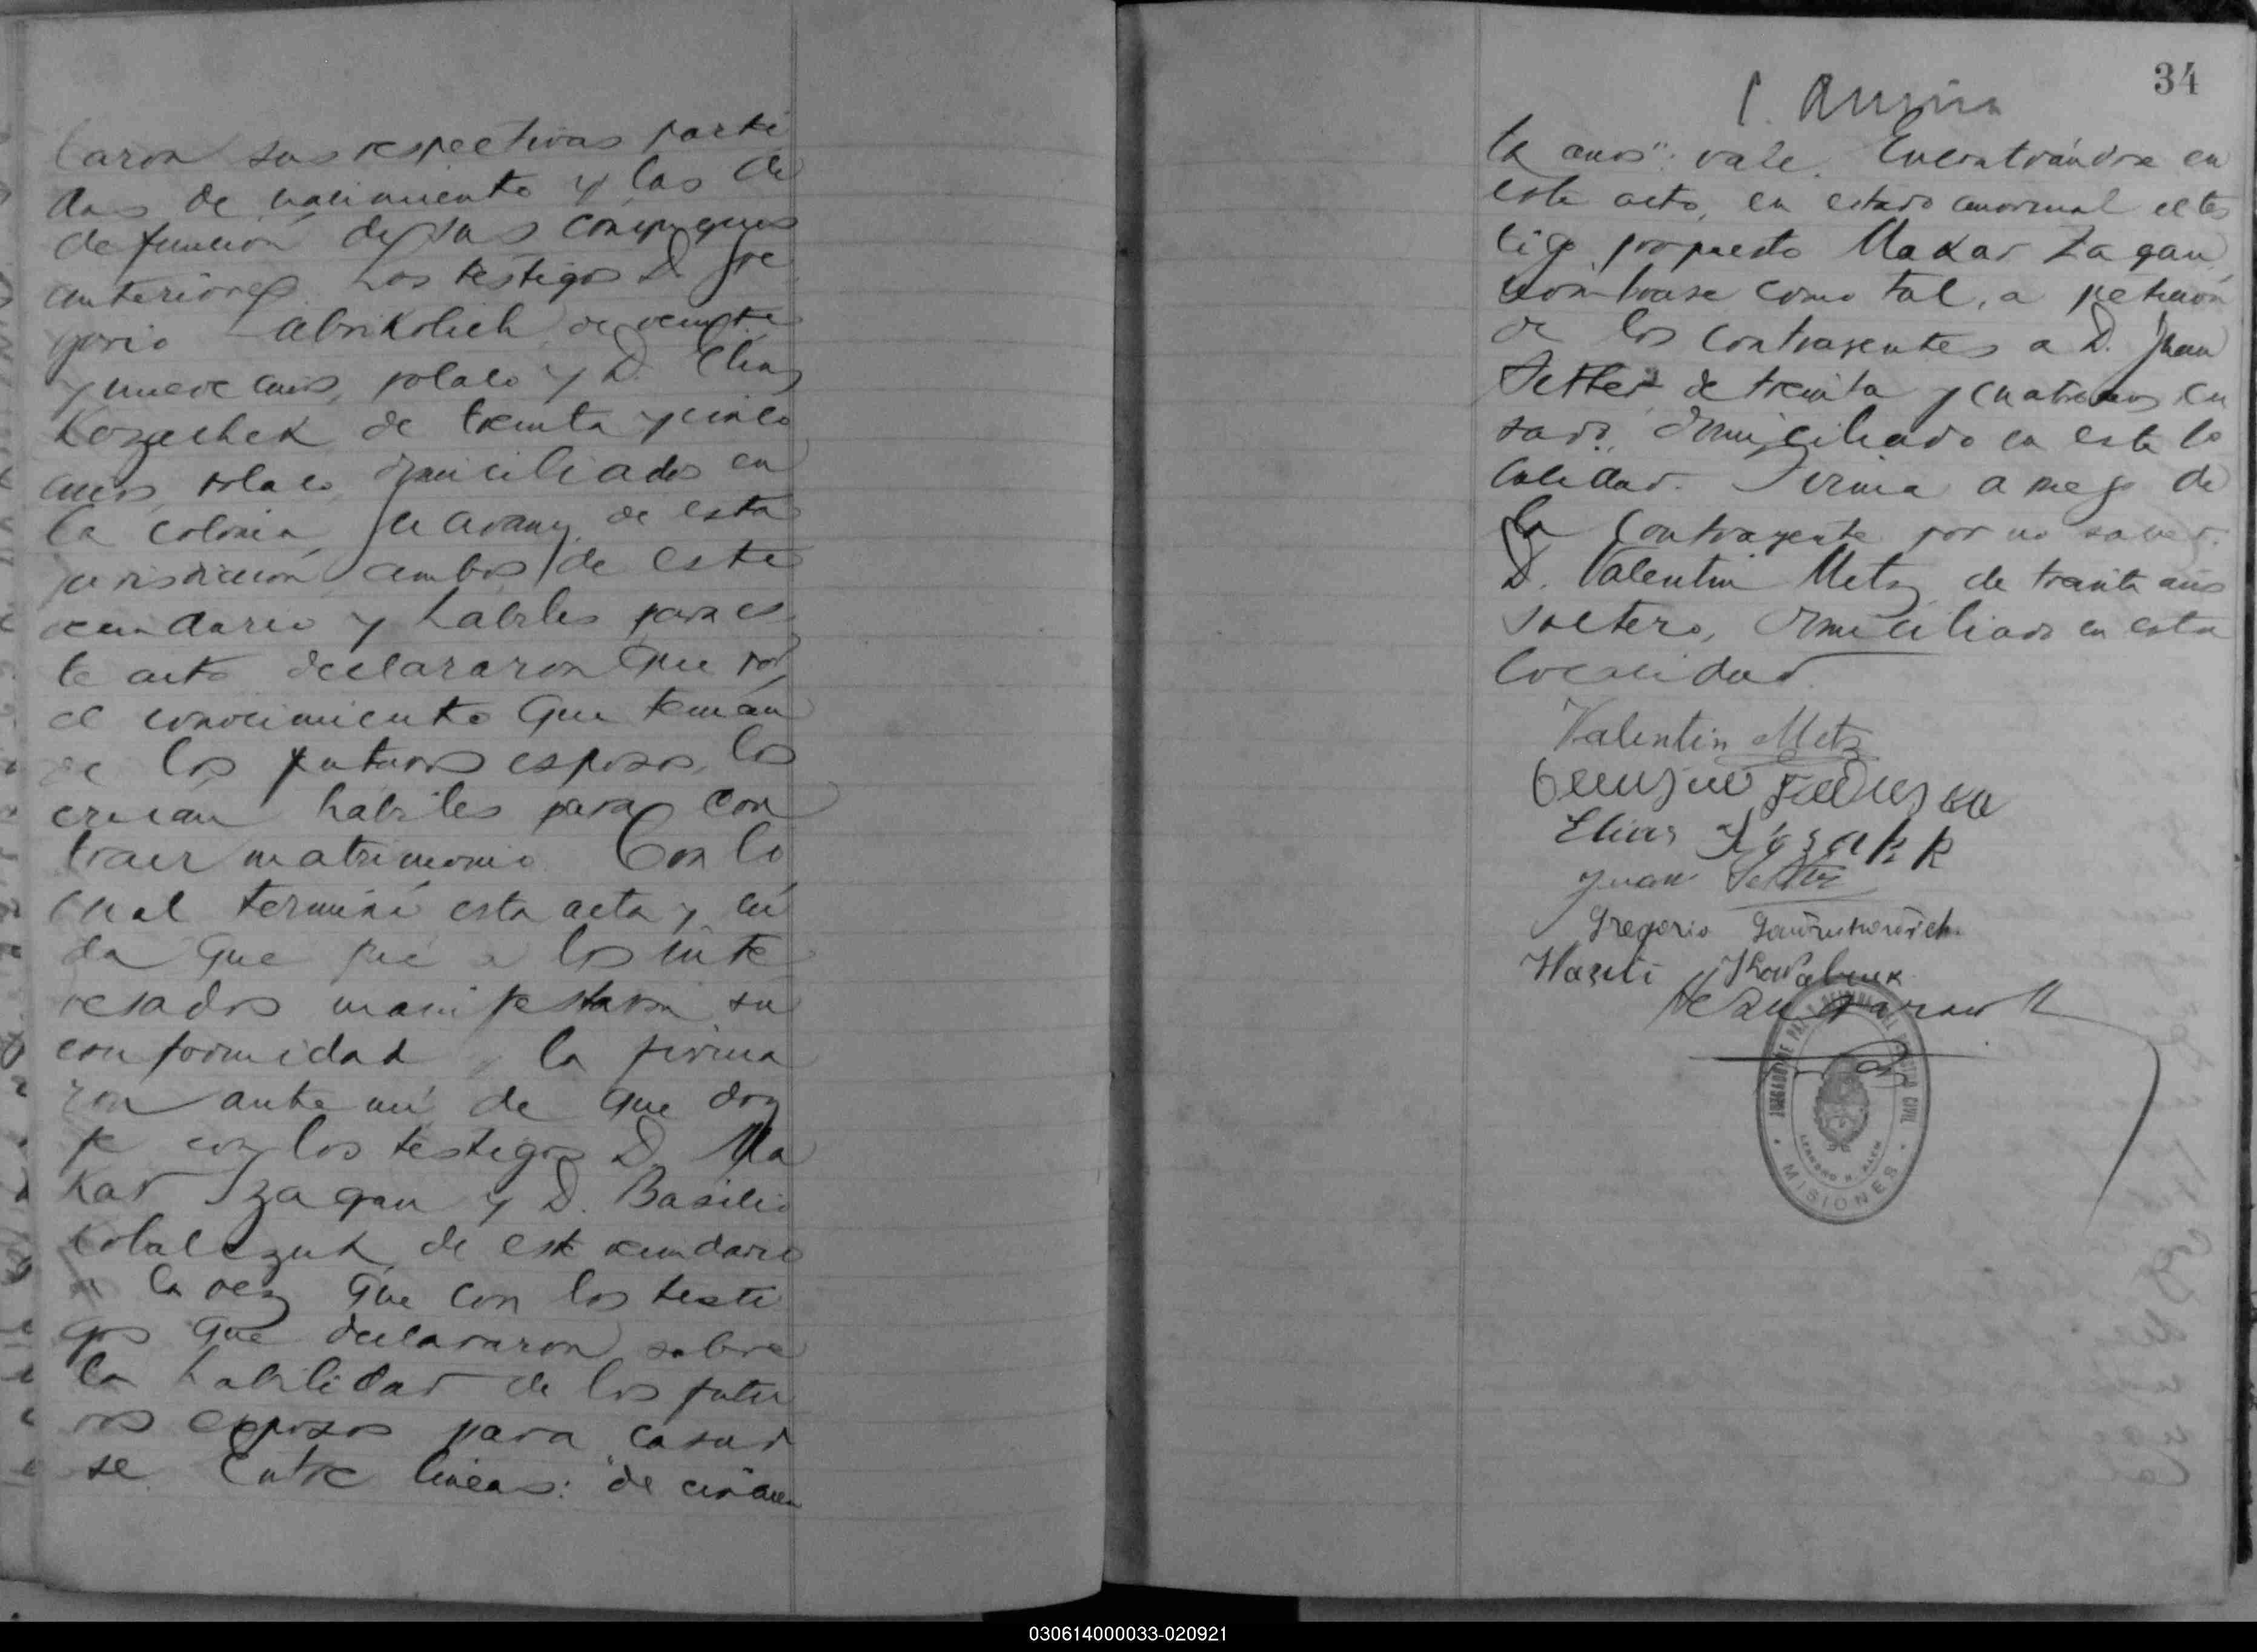 taron sus respectivas parti
das de nacimiento y las de
defunción de sus cónyuges
anteriores. Los testigos D. Gre
gorio de veinte
y nueve años, polaco y D. Elias
Kozachek de treinta y cinco
años, polaco, domiciliados en
la colonia Guarany, de esta
jurisdicción ambos de este
vecindario y habiles para es
te acto declararon que por
el conocimiento que tenían
de los futuros esposos, los
creían hábiles para con
traer matrimonio. Con lo
cual terminé esta acta y leí
da que fué a los inte
resados manifestaron su
conformidad y la firma
ron ante mí de que doy
fe con los testigos D. Ma
kar Zagan y D. Basilio
Kobalczuk de este vecindario
a la vez que con los testi
gos que declararon sobre
la habilidad de los futu
ros esposos para casar
se. Entre líneas: "de cincuen
34
ta años": vale. Encontrándose en
este acto, en estado anormal el tes
tigo propuesto Makar Zagan,
nómbrase como tal, a petición
de los contrayentes a D. Juan
Setter de treinta y cuatro años, ca
sado, domiciliado en esta lo
calidad. Firma a ruego de
la contrayente por no saber.
D. Valentin Metz, de treinta años
soltero, domiciliado en esta
localidad.
Valentin Metz
Elias
Juan Setter
Gregorio
JUZGADO DE PAZ Y OFICINA DEL REGISTRO CIVIL
LEANDRO N. ALEM
MISIONES
030614000033-020921